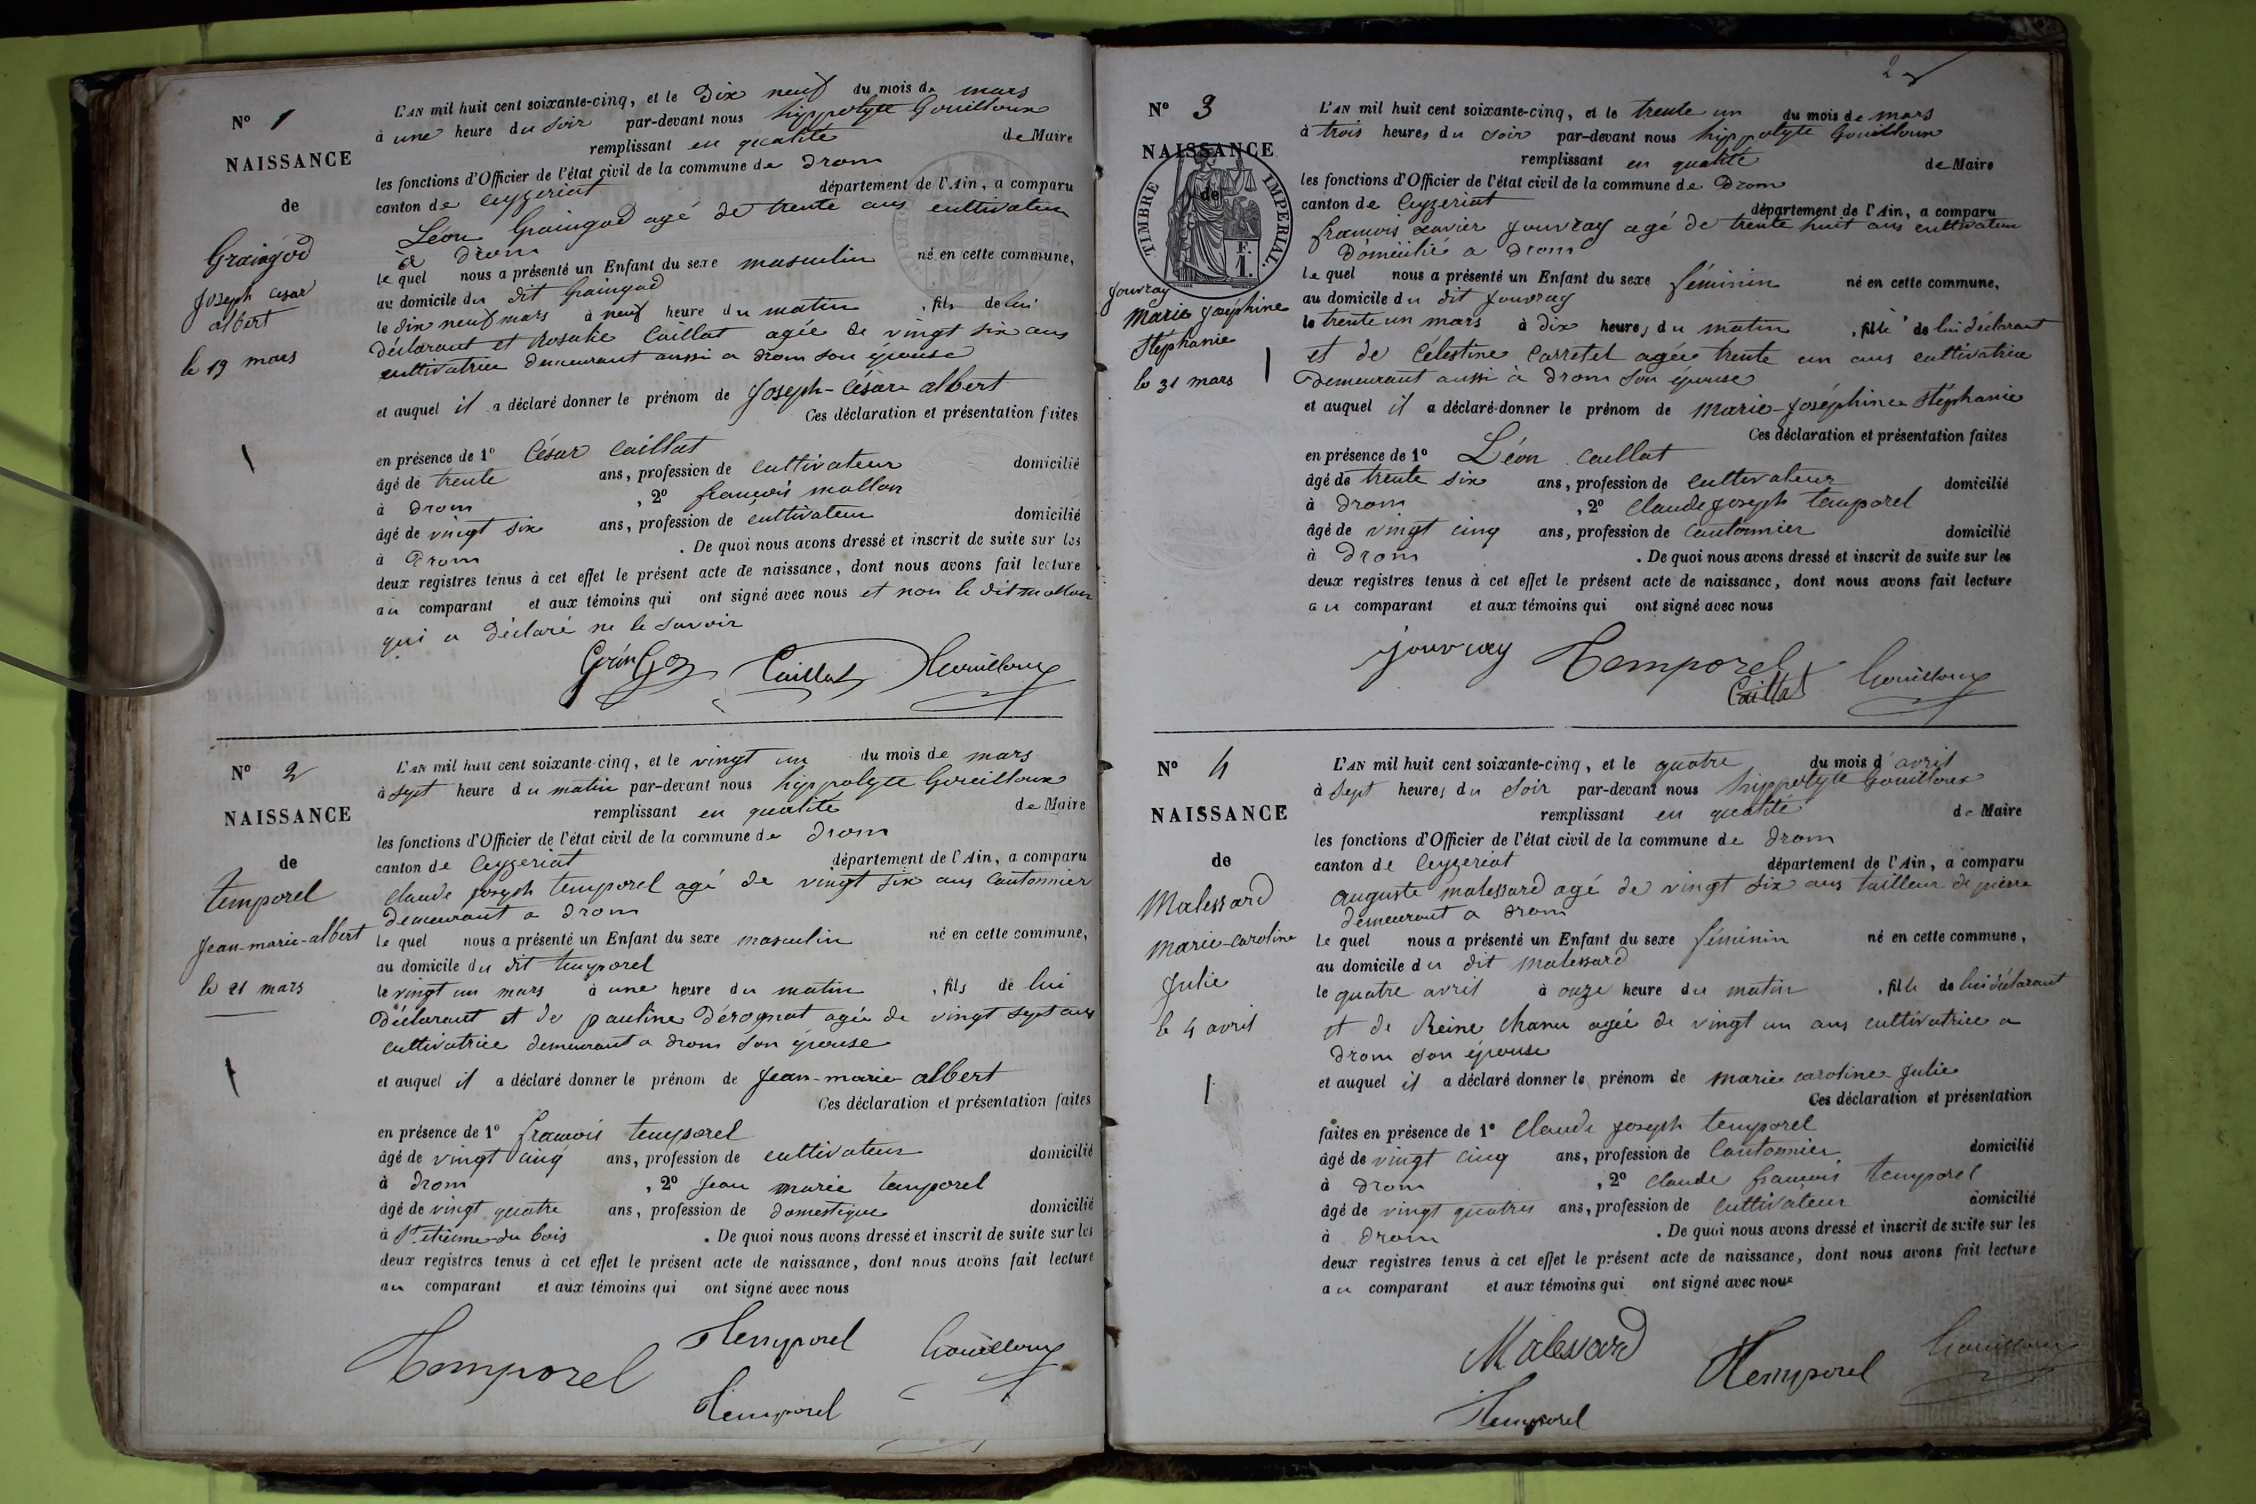 N° 1
NAISSANCE
de
Graingod
Joseph César
albert
le 19 mars
L'AN mil huit cent soixante-cinq, et le Dix neuf du mois de mars
à une heure du soir par-devant nous hyppolyte Gouilloux
remplissant en qualité de Maire
les fonctions d'Officier de l'état civil de la commune de Drom
canton de Ceyzeriat département de l'Ain, a comparu
Léon Graingod agé de trente ans cultivateur
à Drom
le quel nous a présenté un Enfant du sexe masculin né en cette commune,
au domicile du dit Graingod
le dix neuf mars à neuf heure du matin , fils de lui
déclarant et Rosalie Caillat agée de vingt six ans
cultivatrice demeurant aussi a drom son épouse
et auquel il a déclaré donner le prénom de Joseph-César albert
Ces déclaration et présentation faites
en présence de 1° César Caillat
âgé de trente ans, profession de cultivateur domicilié
à Drom , 2° françois mollon
âgé de vingt six ans, profession de cultivateur domicilié
à Drom . De quoi nous avons dressé et inscrit de suite sur les
deux registres tenus à cet effet le présent acte de naissance, dont nous avons fait lecture
au comparant et aux témoins qui ont signé avec nous et non le dit mollon
qui a déclaré ne le savoir
Caillat Gouilloux
N° 2
NAISSANCE
de
temporel
Jean-marie-albert
le 21 mars
L'AN mil huit cent soixante-cinq, et le vingt un du mois de mars
à sept heure du matin par-devant nous hyppolyte Gouilloux
remplissant en qualité de Maire
les fonctions d'Officier de l'état civil de la commune de drom
canton de Ceyzeriat département de l'Ain, a comparu
claude joseph temporel agé de vingt six ans Cantonnier
demeurant a drom
le quel nous a présenté un Enfant du sexe masculin né en cette commune,
au domicile du dit temporel
le vingt un mars à une heure du matin , fils de lui
Déclarant et de pauline Dérognat agée de vingt sept ans
cultivatrice demeurant a drom son épouse
et auquel il a déclaré donner le prénom de Jean-marie albert
Ces déclaration et présentation faites
en présence de 1° françois temporel
âgé de vingt cinq ans, profession de cultivateur domicilié
à drom , 2° Jean marie temporel
âgé de vingt quatre ans, profession de domestique domicilié
à St etienne du bois . De quoi nous avons dressé et inscrit de suite sur les
deux registres tenus à cet effet le présent acte de naissance, dont nous avons fait lecture
au comparant et aux témoins qui ont signé avec nous
Temporel Temporel Gouilloux
Temporel
2
N° 3
NAISSANCE
de
TIMBRE IMPERIAL
F.
1.
Jouvray
Marie Joséphine
Stéphanie
le 31 mars
L'AN mil huit cent soixante-cinq, et le trente un du mois de mars
à trois heures du soir par-devant nous hippolyte Gouilloux
remplissant en qualité de Maire
les fonctions d'Officier de l'état civil de la commune de Drom
canton de Ceyzeriat département de l'Ain, a comparu
françois xavier Jouvray agé de trente huit ans cultivateur
Domicilié a Drom
le quel nous a présenté un Enfant du sexe féminin né en cette commune,
au domicile du dit Jouvray
le trente un mars à dix heures du matin , fille de lui déclarant
et de Célestine Carretet agée trente un ans cultivatrice
demeurant aussi à drom son épouse
et auquel il a déclaré donner le prénom de Marie-Joséphine Stéphanie
Ces déclaration et présentation faites
en présence de 1° Léon Caillat
âgé de trente six ans, profession de Cultivateur domicilié
à Drom , 2° Claude Joseph temporel
âgé de vingt cinq ans, profession de Cantonnier domicilié
à Drom . De quoi nous avons dressé et inscrit de suite sur les
deux registres tenus à cet effet le présent acte de naissance, dont nous avons fait lecture
au comparant et aux témoins qui ont signé avec nous
jouvray Temporel Gouilloux
Caillat
N° 4
NAISSANCE
de
Malessard
Marie-Caroline
Julie
le 4 avril
L'AN mil huit cent soixante-cinq, et le quatre du mois d'avril
à sept heures du soir par-devant nous hippolyte Gouilloux
remplissant en qualité de Maire
les fonctions d'Officier de l'état civil de la commune de Drom
canton de Ceyzeriat département de l'Ain, a comparu
auguste malessard agé de vingt six ans tailleur de pierre
demeurant a drom
le quel nous a présenté un Enfant du sexe féminin né en cette commune,
au domicile du dit malessard
le quatre avril à onze heure du matin , fille de lui déclarant
et de Reine Chanu agée de vingt un ans cultivatrice a
drom son épouse
et auquel il a déclaré donner le prénom de marie caroline Julie
Ces déclaration et présentation
faites en présence de 1° Claude Joseph temporel
âgé de vingt cinq ans, profession de Cantonnier domicilié
à drom , 2° Claude françois temporel
âgé de vingt quatres ans, profession de Cultivateur domicilié
à drom . De quoi nous avons dressé et inscrit de suite sur les
deux registres tenus à cet effet le présent acte de naissance, dont nous avons fait lecture
au comparant et aux témoins qui ont signé avec nous
Malessard Temporel Gouilloux
Temporel